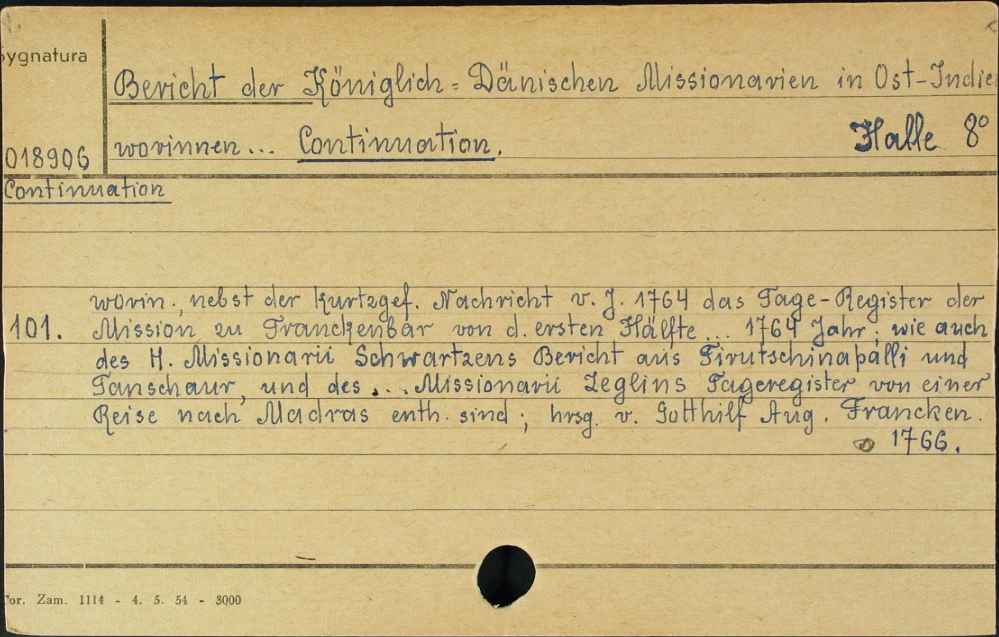 Sygnatura
Bericht der Königlich = Dänischen Missionarien in Ost-Indie
018906 worinnen ... Continuation. Halle 8°
Continuation
worin, nebst der kurtzgef. Nachricht v. J. 1764 das Tage-Register der
101. Mission zu Tranckenbar von d. ersten Hälfte ... 1764 Jahr; wie auch
des H. Missionarii Schwartzens Bericht aus Tirutschinapalli und
Tanschaur, und des ... Missionarii Zeglins Tageregister von einer
Reise nach Madras enth. sind; hrsg. v. Gotthilf Aug. Francken.
1766.
Tor. Zam. 1114 - 4. 5. 54 - 3000